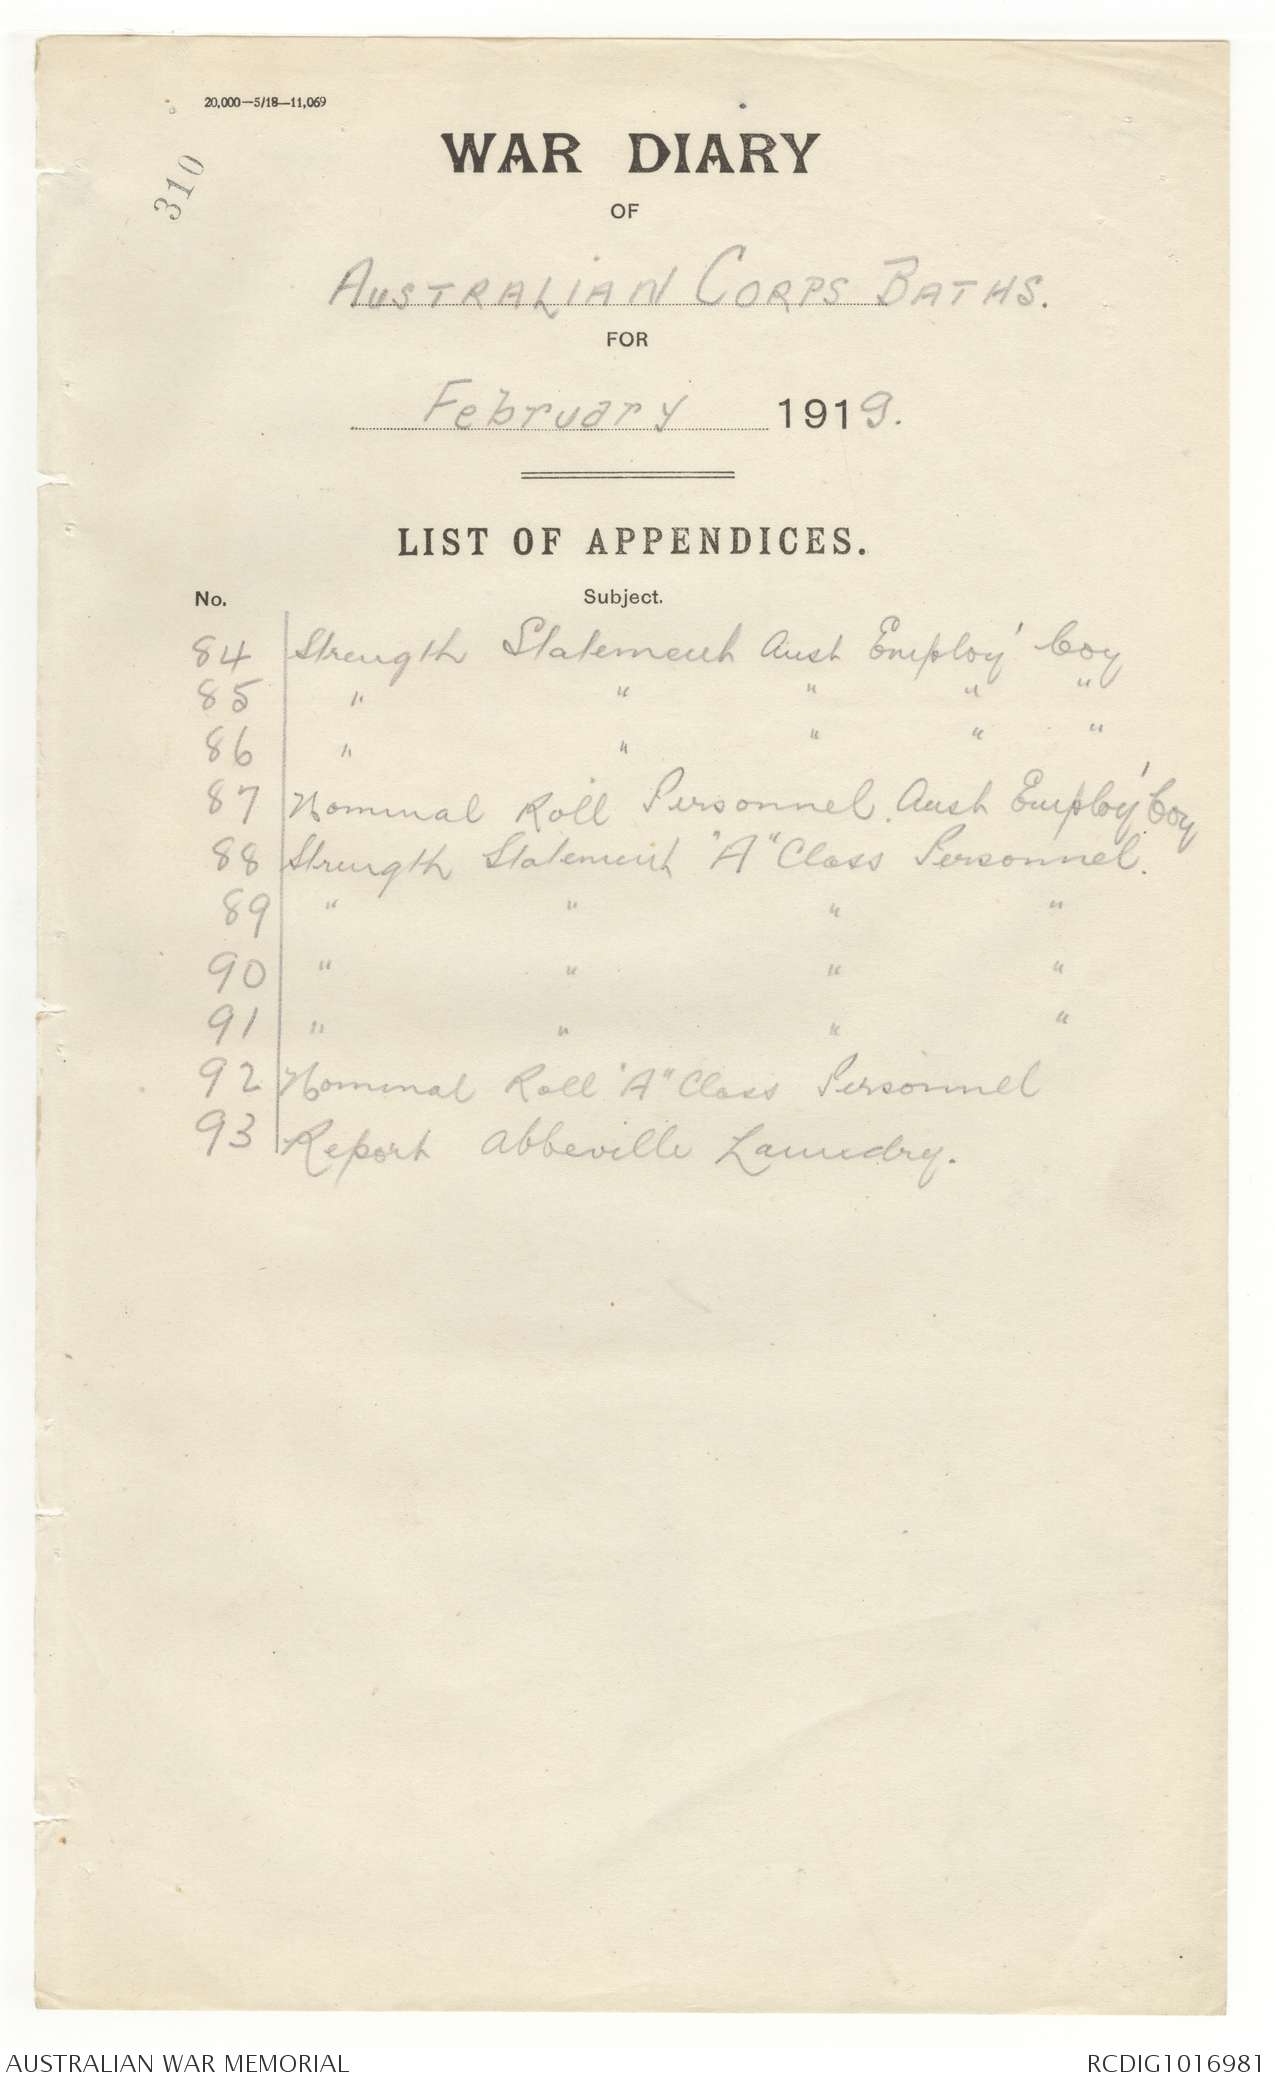 20,000—5/18—11,069
310
WAR DIARY
OF
AUSTRALIAN CORPS BATHS.
FOR
February 1919.
LIST OF APPENDICES.
No. Subject.
84 Strength Statement Aust Employ' Coy
85 " " " " "
86 " " " " "
87 Nominal Roll Personnel. Aust Employ' Coy
88 Strength Statement "A" Class Personnel.
89 " " " "
90 " " " "
91 " " " "
92 Nominal Roll "A" Class Personnel
93 Report Abbeville Laundry.
AUSTRALIAN WAR MEMORIAL RCDIG1016981